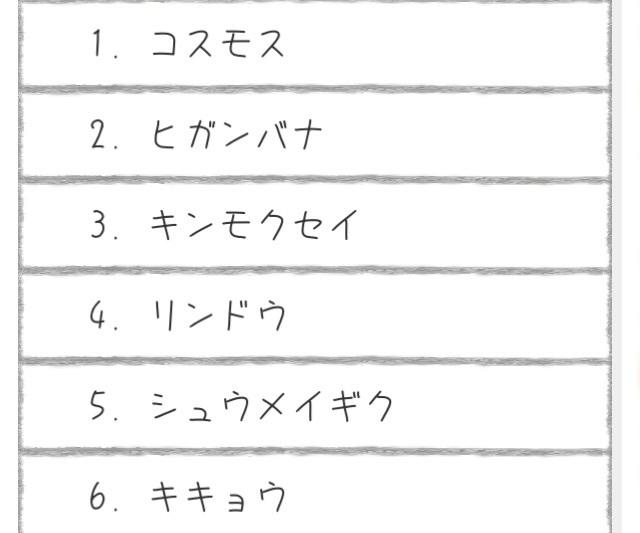 1. コスモス
2. ヒガンバナ
3. キンモクセイ
4. リンドウ
5. シュウメイギク
6. キキョウ